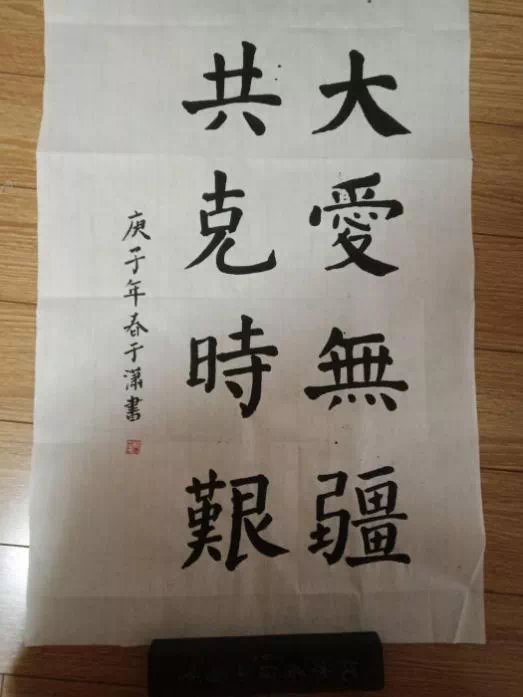 大愛無疆
共克時艱
庚子年春于潇書